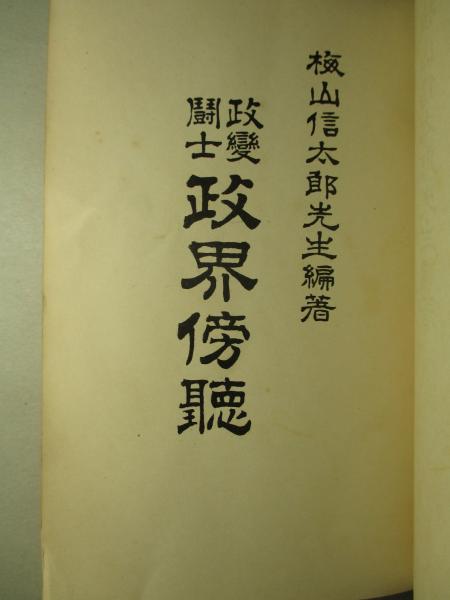 梅山信太郎先生編著
政變
鬪士
政界傍聽